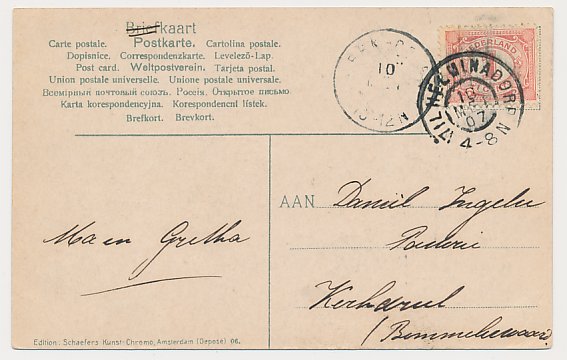 Briefkaart
Carte postale. Postkarte. Cartolina postale.
Dopisnice. Correspondenzkarte. Levelező-Lap.
Post card. Weltpostverein. Tarjeta postal.
Union postale universelle. Unione postale universale.
Всемірный почтовый союз. Россія. Открытое письмо.
Karta korespondencyjna. Korespondenční lístek.
Brefkort. Brevkort.
NEDERLAND
10
WILHELMINADORP
07
4-8 N
AAN Daniël Ingelse
Ma en Gretha
Kerkdriel
(Bommelerwaard
Edition: Schaefers Kunst-Chromo, Amsterdam (Deposé) 06.